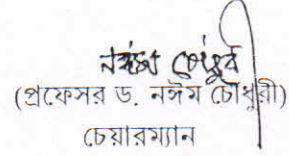 নঈম চৌধুরী
(প্রফেসর ড. নঈম চৌধুরী)
চেয়ারম্যান